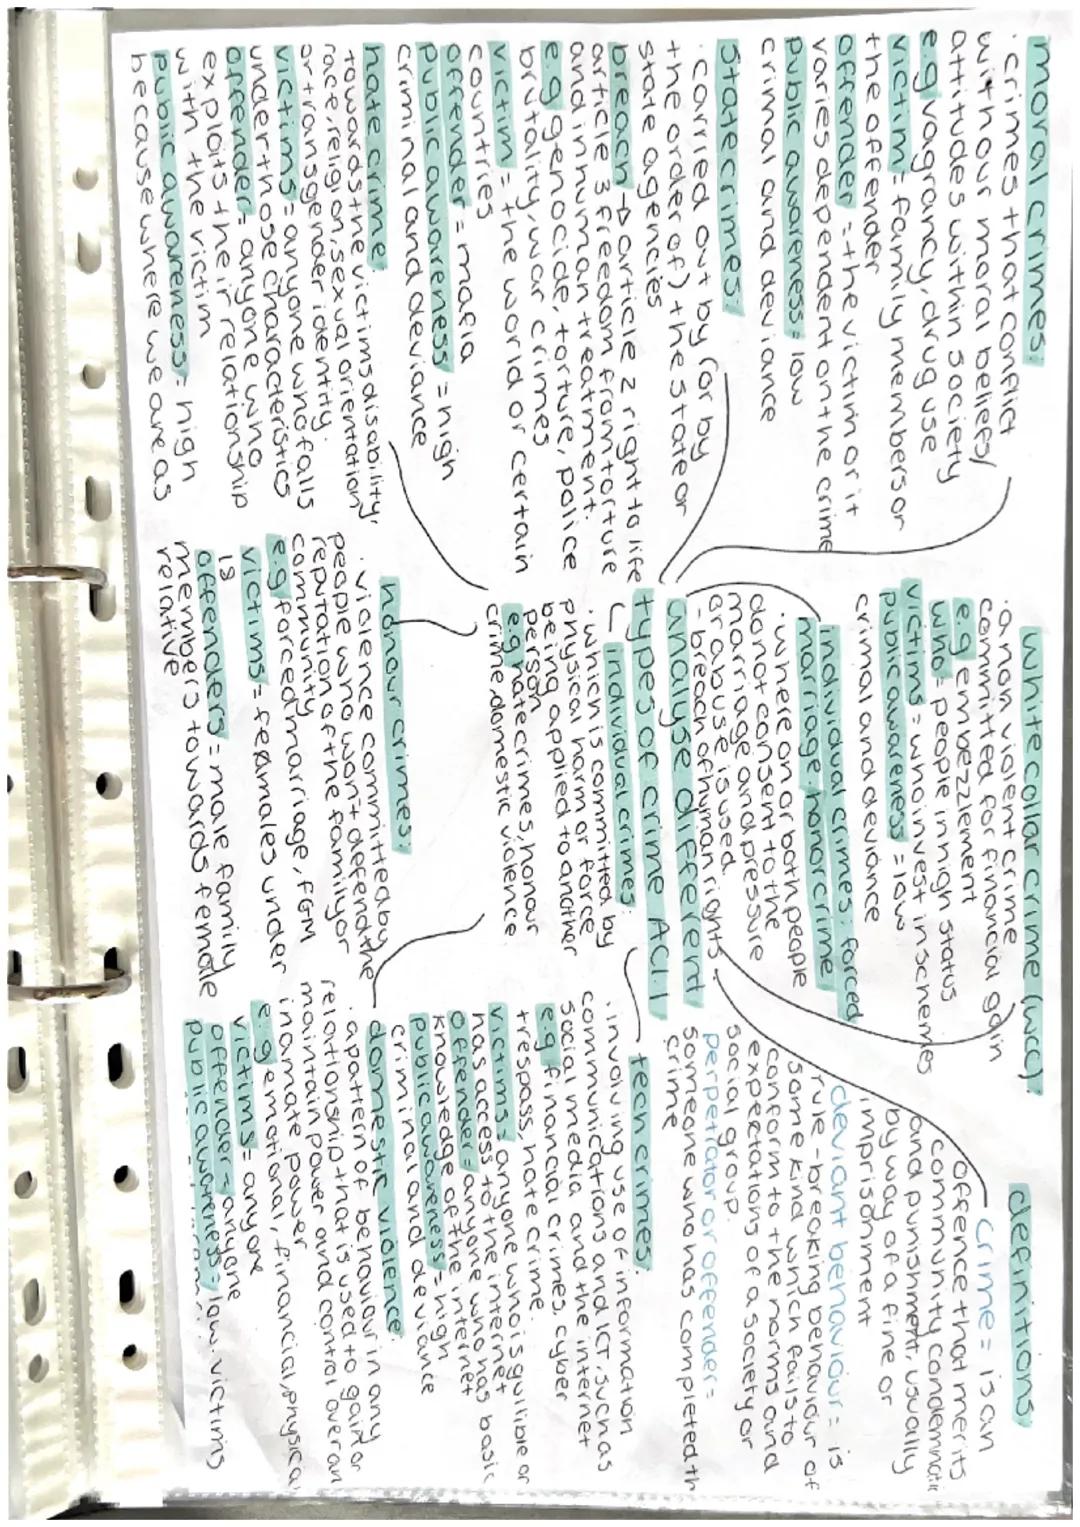 moral crimes:
· crimes that conflict
with our moral beliefs/
attitudes within society
e.g vagrancy, drug use
victim = family members or
the offender
offender = the victim or it
varies dependent on the crime
public awareness = low
crimal and deviance
State crimes:
· carried out by (or by
the order of) the state or
state agencies
breach → article 2 right to life
article 3 freedom from torture
and inhuman treatment.
e.g genocide, torture, police
brutality, war crimes
victim = the world or certain
countries
offender = mafia
public awareness = high
criminal and deviance
hate crime:
towards the victims disability,
race, religion, sexual orientation,
or transgender identity.
victims = anyone who falls
under those characteristics
offender = anyone who
exploits the ir relationship
with the victim
public awareness = high
because where we are as
white collar crime (wcc):
· a non violent crime
committed for financial gain
e.g embezzlement
who = people in high status
victims = who invest in schemes
public awareness = low
crimal and deviance
individual crimes: forced
marriage, honor crime
· where on or both people
do not consent to the
marriage and pressure
or abuse is used.
- breach of human rights
analyse different
types of crime AC1.1
individual crimes:
· which is committed by
physical harm or force
being applied to another
person
e.g hate crimes, honour
crime, domestic violence.
honour crimes:
· violence committed by
people who won't defend the
reputation of the family or
community
e.g forced marriage, FGM
victims = females under
18
offenders = male family
members towards female
relative
definitions
crime = is an
offence that merits
community condemnatio
and punishment, usually
by way of a fine or
imprisonment
deviant behaviour = is
rule-breaking behaviour of
some kind which fails to
conform to the norms and
expectations of a society or
social group.
perpetrator or offender =
someone who has completed th
crime
tech crimes:
· involving use of information
communications and ICT, such as
social media and the internet
e.g financial crimes, cyber
trespass, hate crime.
victims, anyone who is gullible or
has access to the internet
offender = anyone who has basic
knowledge of the internet
public awareness = high
criminal and deviance
domestic violence:
· a pattern of behaviour in any
relationship that is used to gain or
maintain power and control over an
inamate power
e.g emotional, financial, physical
victims = anyone
offender = anyone
public awareness = low. victims